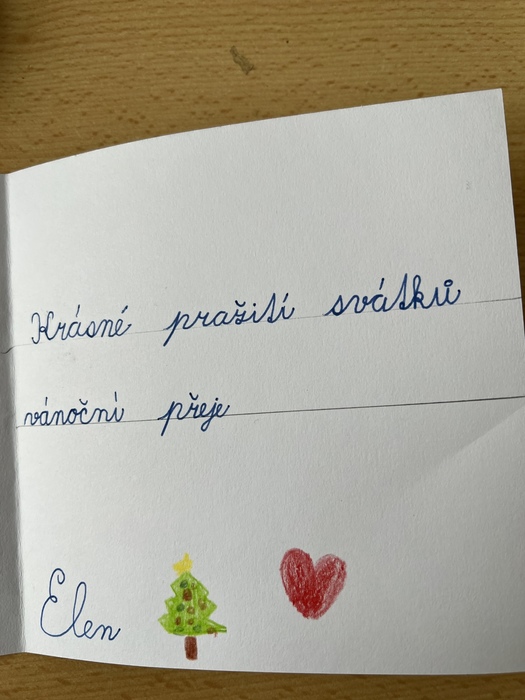 Krásné pražití svátků
vánoční přeje
Elen